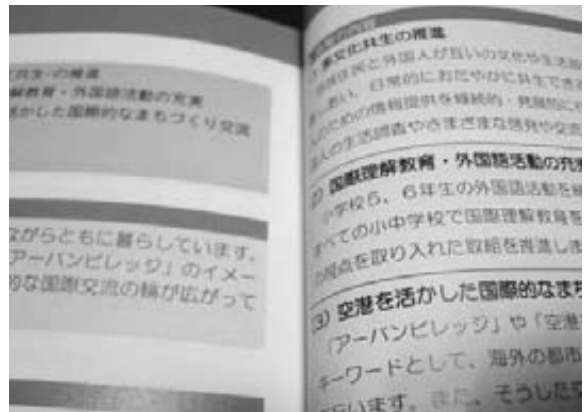 共生の推進
解教育・外国語活動の充実
活かした国際的なまちづくり交流
ながらともに暮らしています。
アーバンビレッジ」のイメー
的な国際交流の輪が広がって
多文化共生の推進
地域住民と外国人が互いの文化や生活習
合い、日常的におだやかに共生でき
のための情報提供を継続的・発展的に
人の生活調査やさまざまな啓発や交流
2) 国際理解教育・外国語活動の充実
小学校5、6年生の外国語活動を
すべての小中学校で国際理解教育を
の視点を取り入れた取組を推進しま
(3) 空港を活かした国際的なまち
「アーバンビレッジ」や「空港
キーワードとして、海外の都市
行います。また、そうした